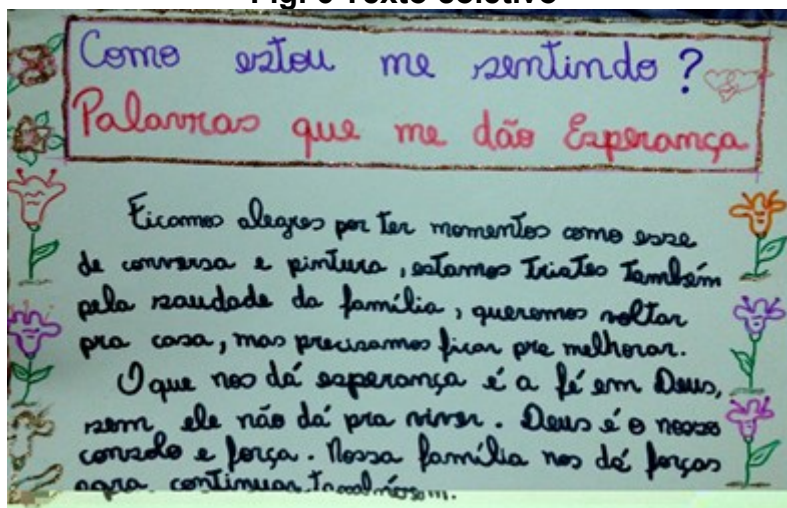 Fig. 6 Texto coletivo
Como estou me sentindo?
Palavras que me dão Esperança
Ficamos alegres por ter momentos como esse
de conversa e pintura, estamos tristes também
pela saudade da família, queremos voltar
pra casa, mas precisamos ficar pra melhorar.
O que nos dá esperança é a fé em Deus,
sem ele não dá pra viver. Deus é o nosso
consolo e força. Nossa família nos dá forças
continuar